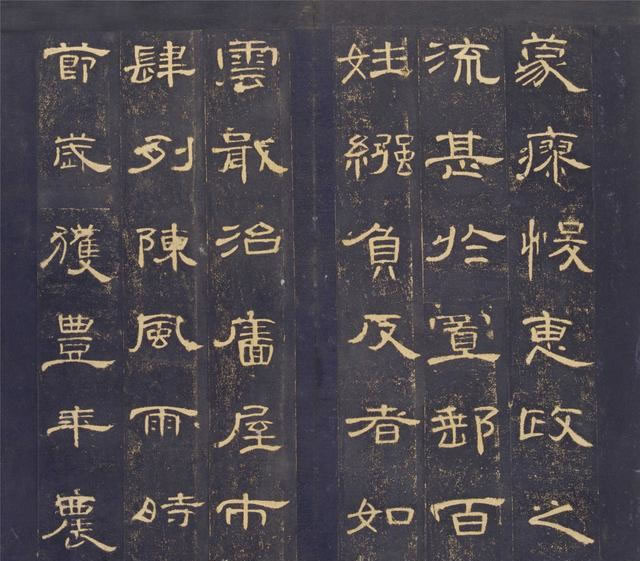 蒙瘳悛惠政之
流甚於置郵百
姓繦負反者如
雲戢治廧屋市
肆列陳風雨時
節歲獲豊年農